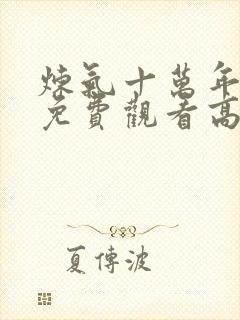 煉氣十萬年
免費觀看高
夏傳波